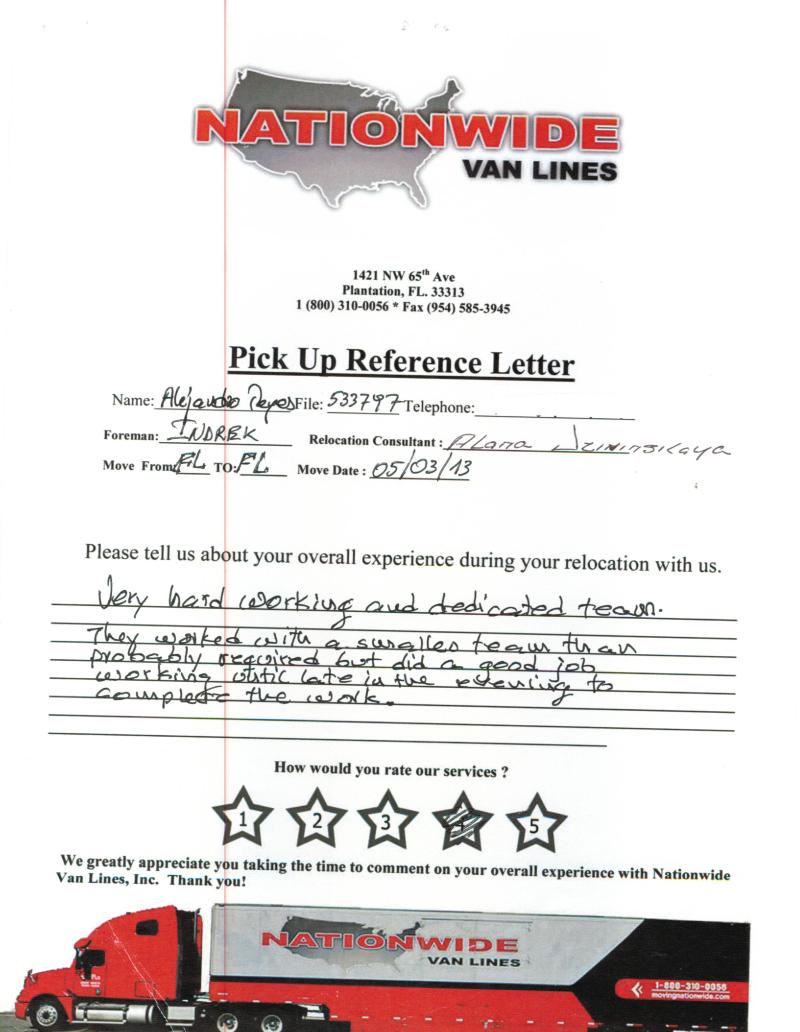 NATIONWIDE
VAN LINES
1421 NW 65th Ave
Plantation, FL. 33313
1 (800) 310-0056 * Fax (954) 585-3945
Pick Up Reference Letter
Name: Alejandro Reyes File: 533797 Telephone:
Foreman: INDREK Relocation Consultant : Alana
Move From FL TO: FL Move Date : 05/03/13
Please tell us about your overall experience during your relocation with us.
Very hard working and dedicated team.
They worked with a smaller team than
probably required but did a good job
working until late in the evening to
complete the work.
How would you rate our services ?
1 2 3 4 5
We greatly appreciate you taking the time to comment on your overall experience with Nationwide
Van Lines, Inc. Thank you!
NATIONWIDE
VAN LINES
1-800-310-0056
movingnationwide.com